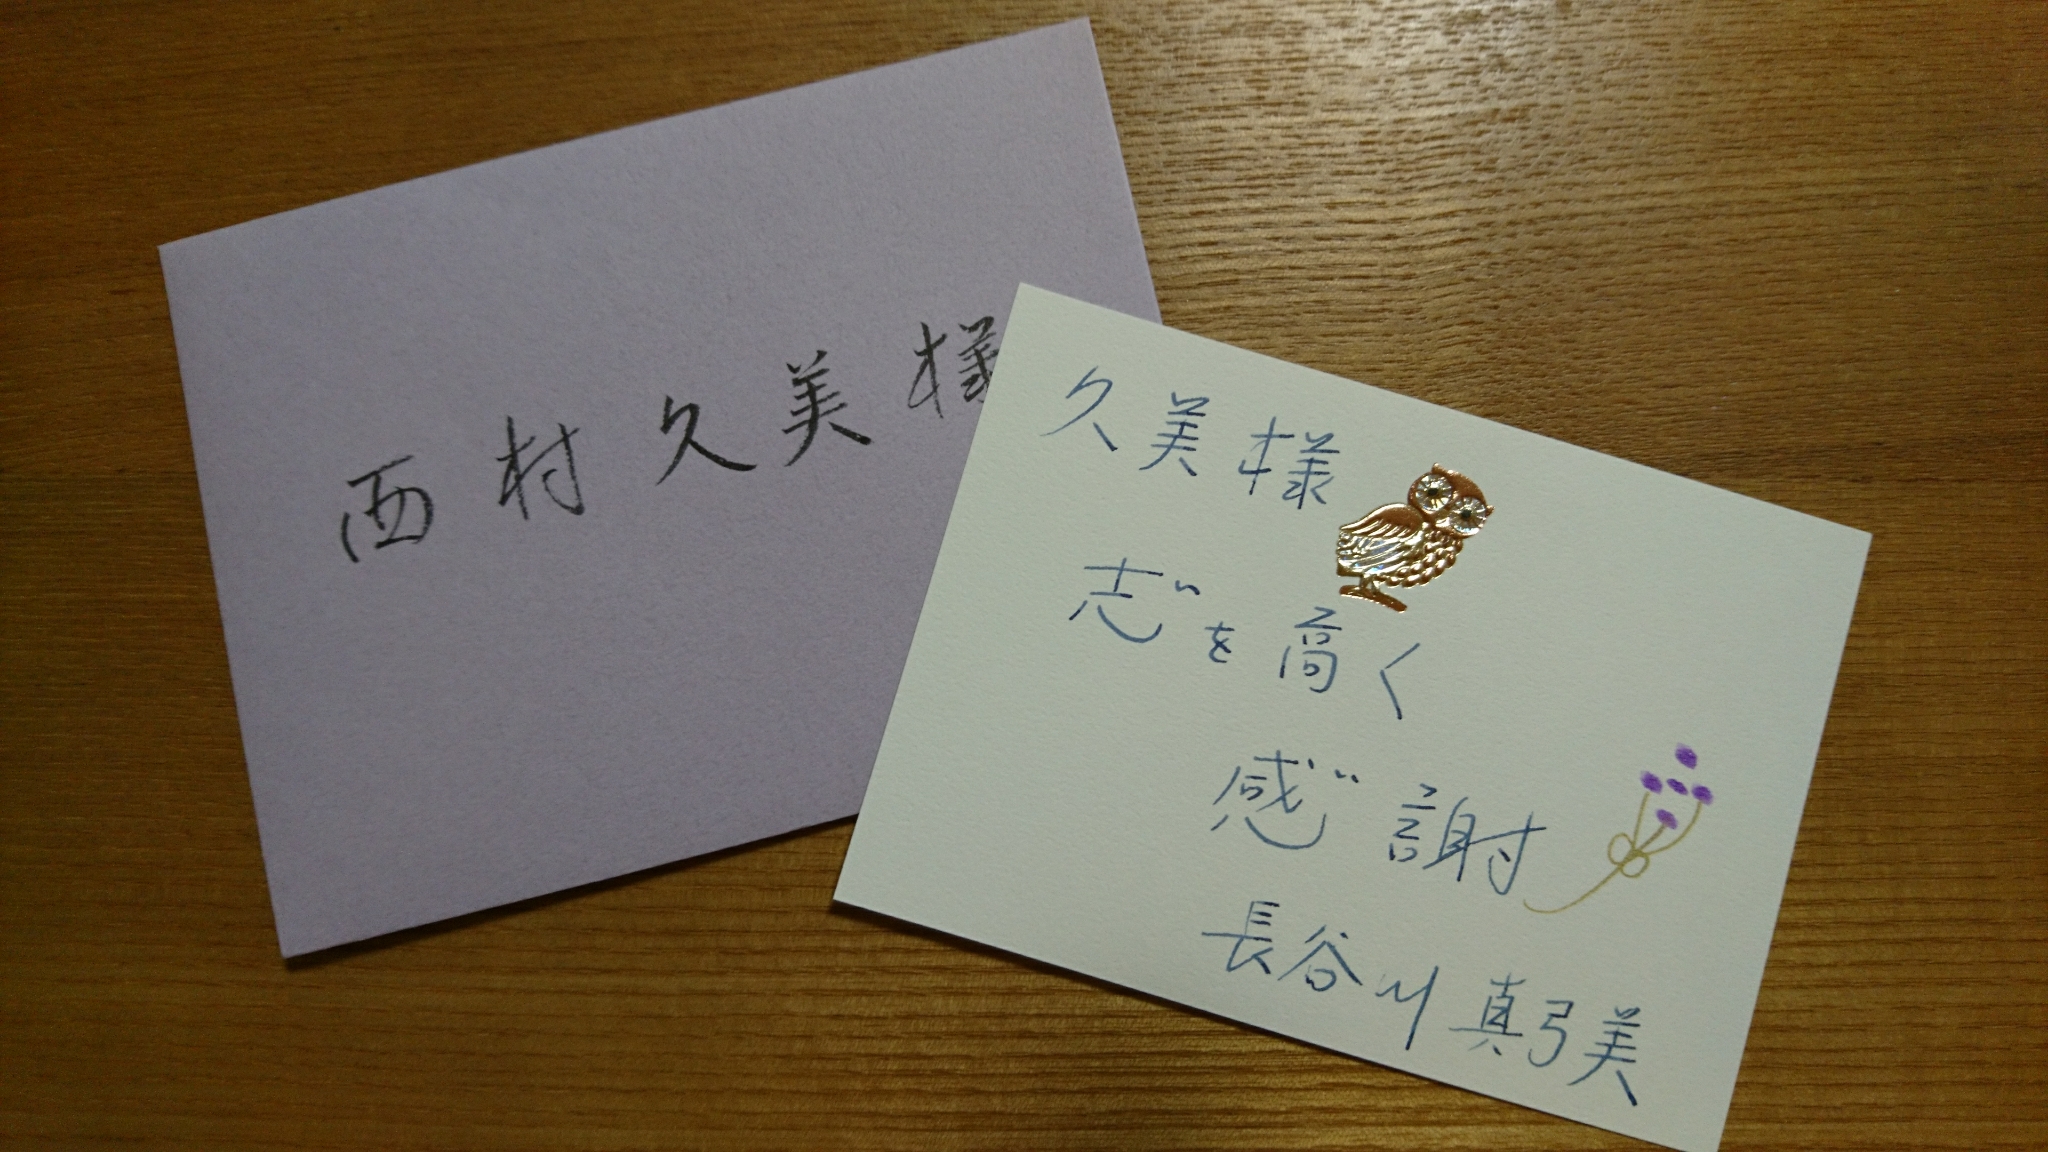 西村久美様
久美様
志を高く
感謝
長谷川真弓美